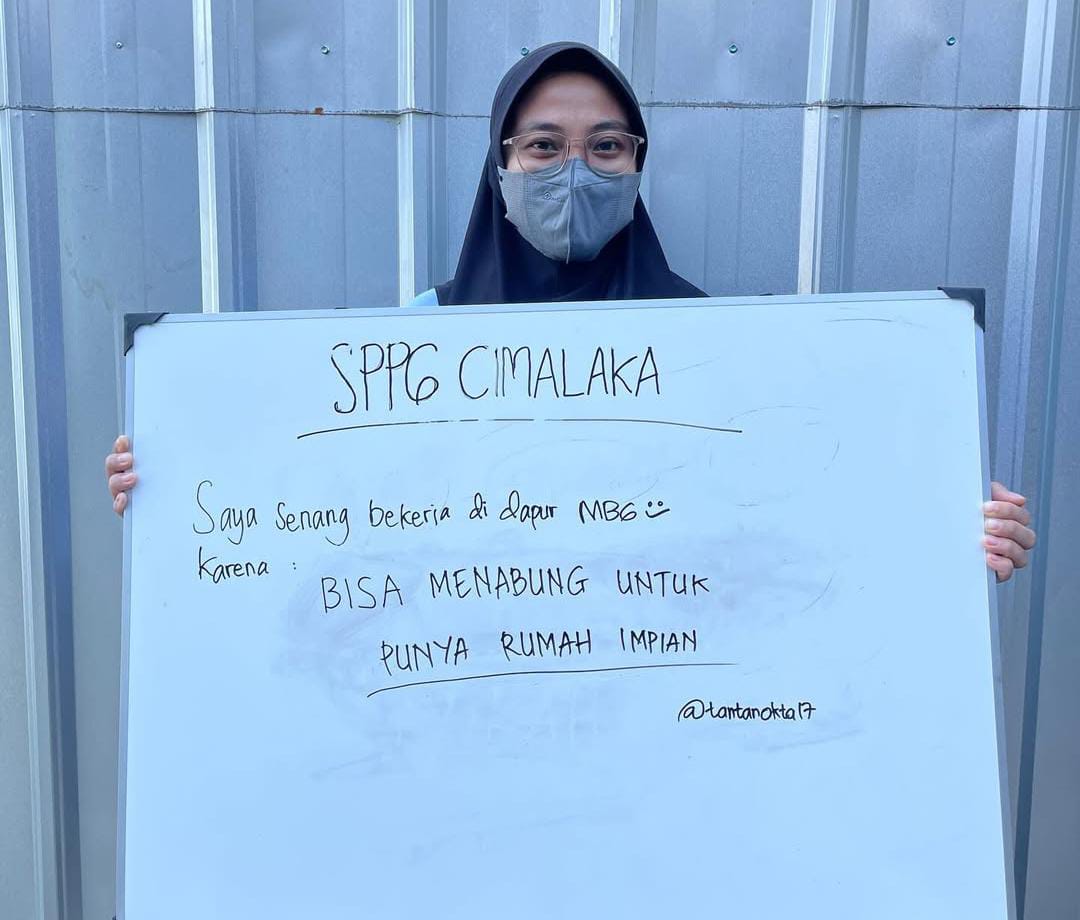 SPPG CIMALAKA
Saya senang bekerja di dapur MBG
karena :
BISA MENABUNG UNTUK
PUNYA RUMAH IMPIAN
@tantanokta17